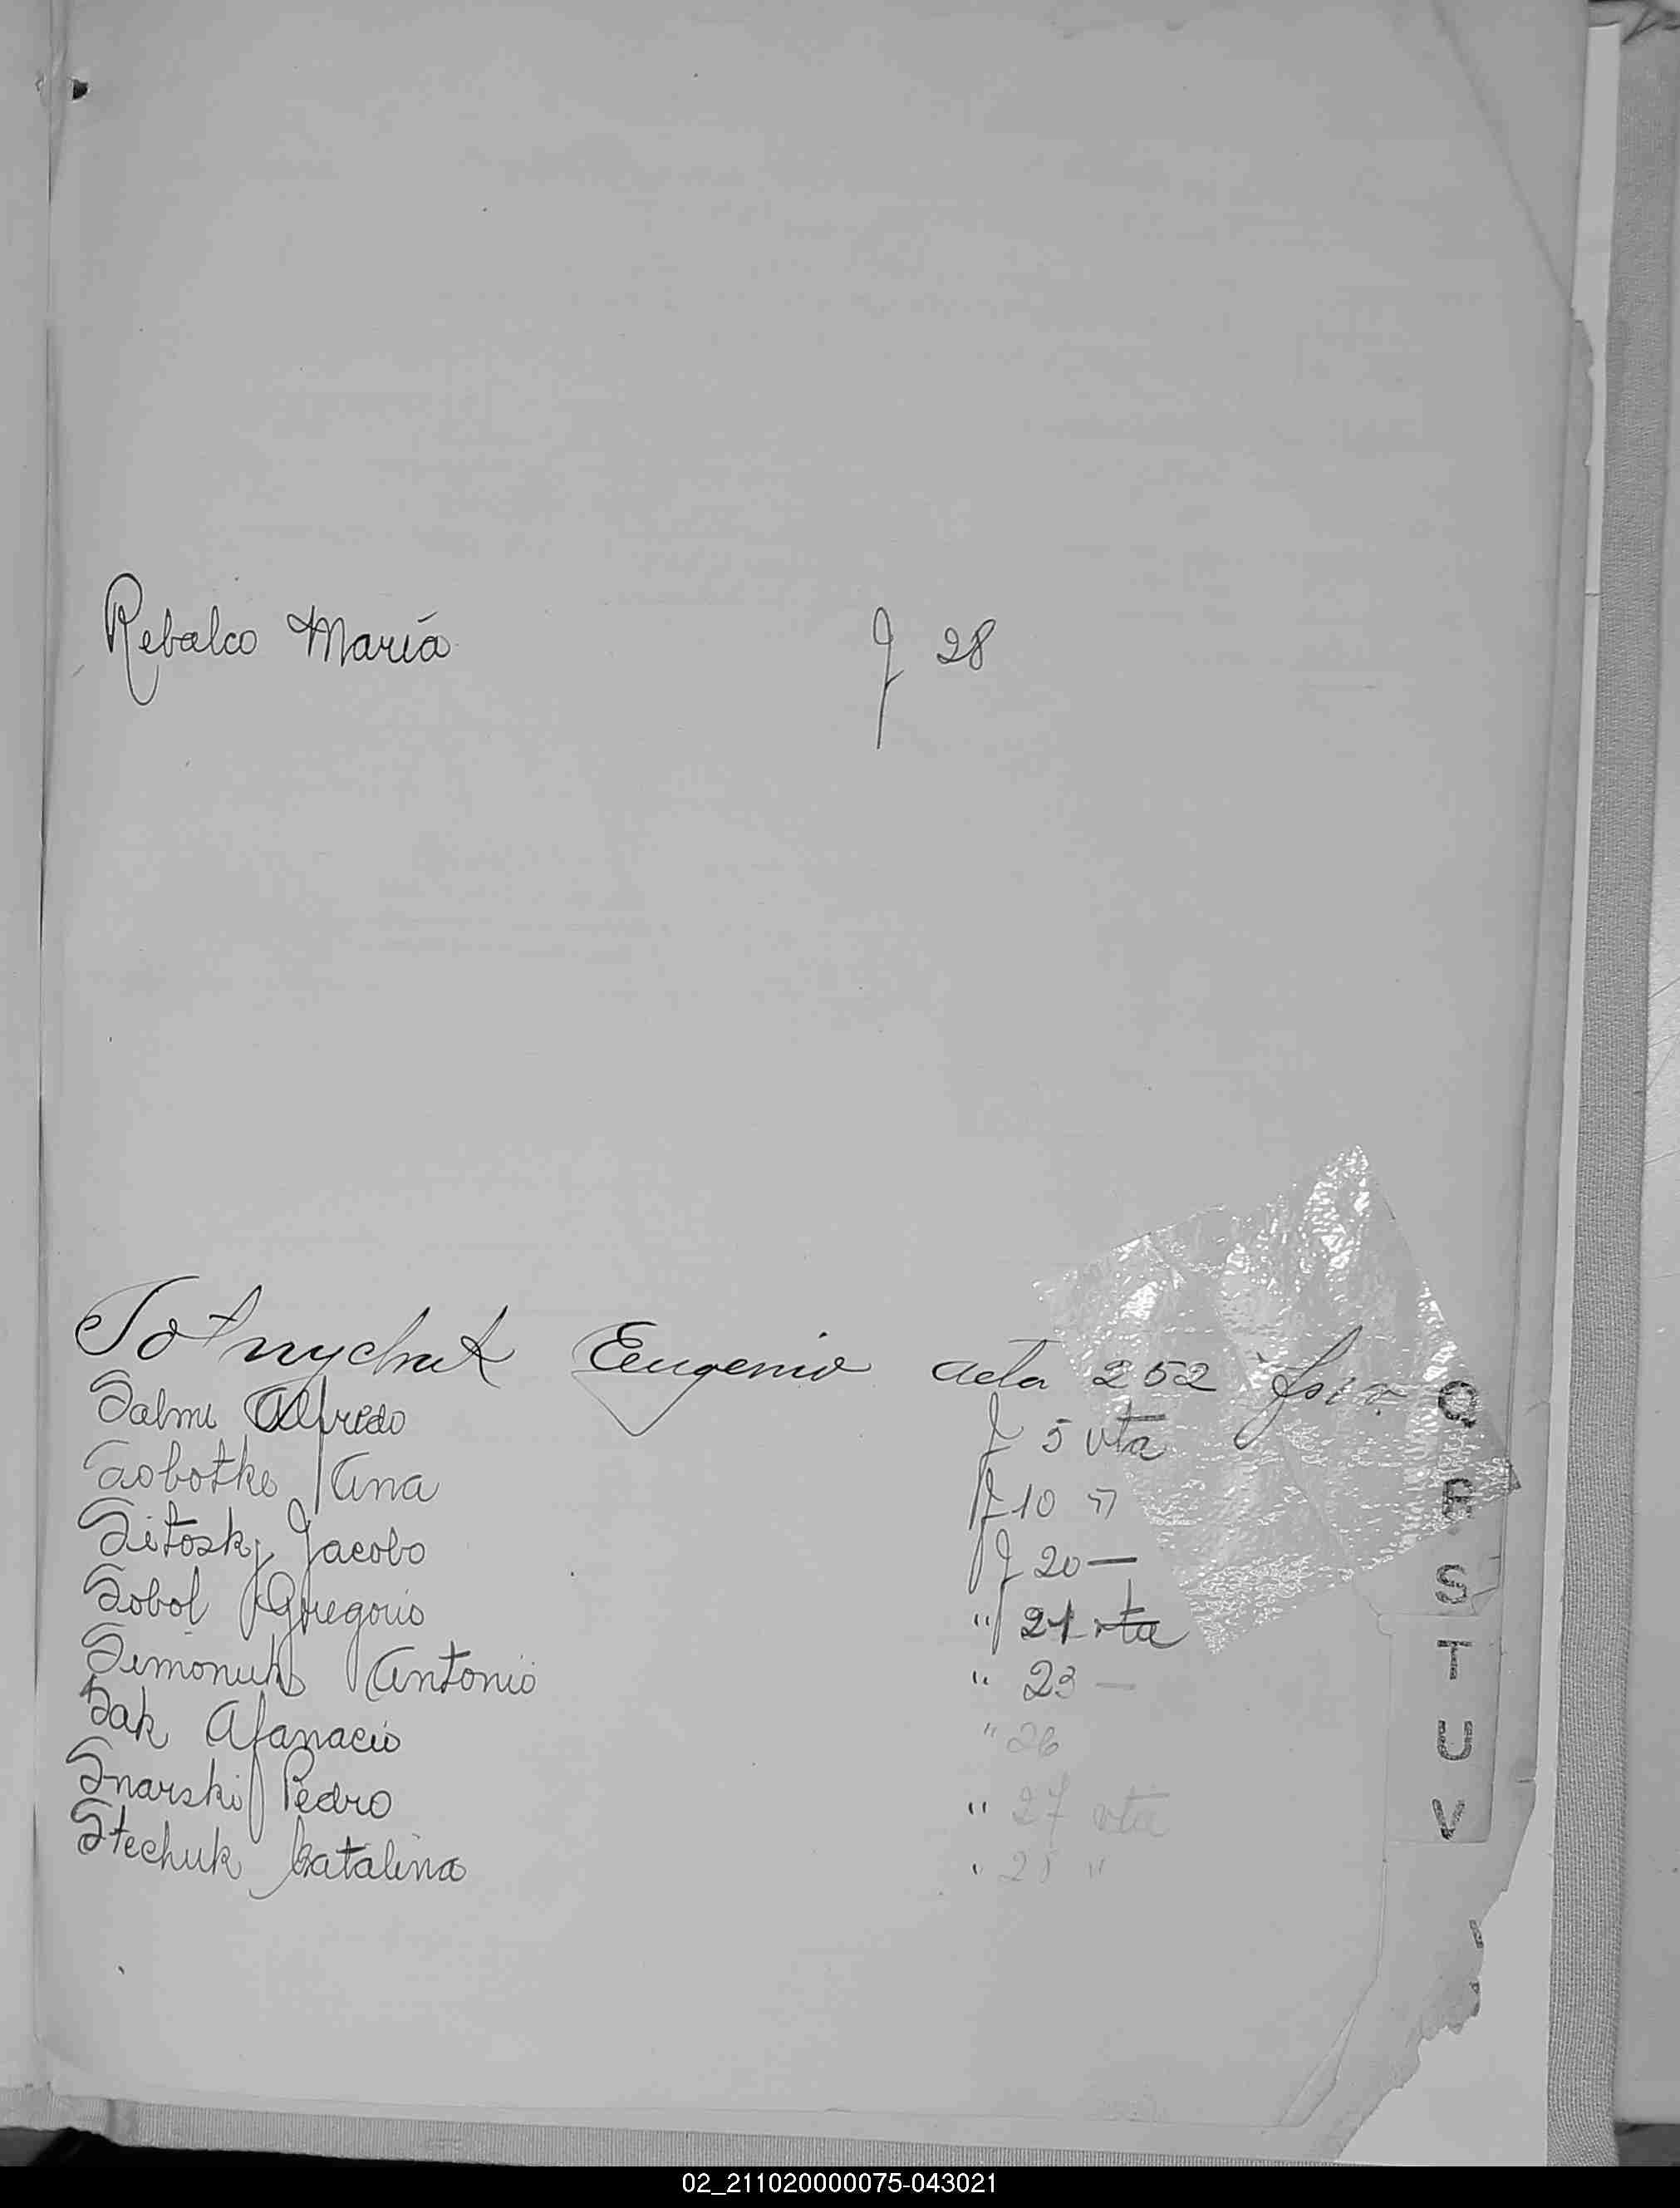 Rebalco María f 28
Sotnychuk Eugenio acta 252
Salmi Alfredo f 5 vta
Sobotke Ana f 10 "
Sitosky Jacobo f 20 —
Sobol Gregorio " 21 vta
Simoniuk Antonio " 23 —
Sak Afanacio " 26
Snarski Pedro " 27 vta
Stechuk Catalina " 28 "
Q
R
S
T
U
V
02_211020000075-043021